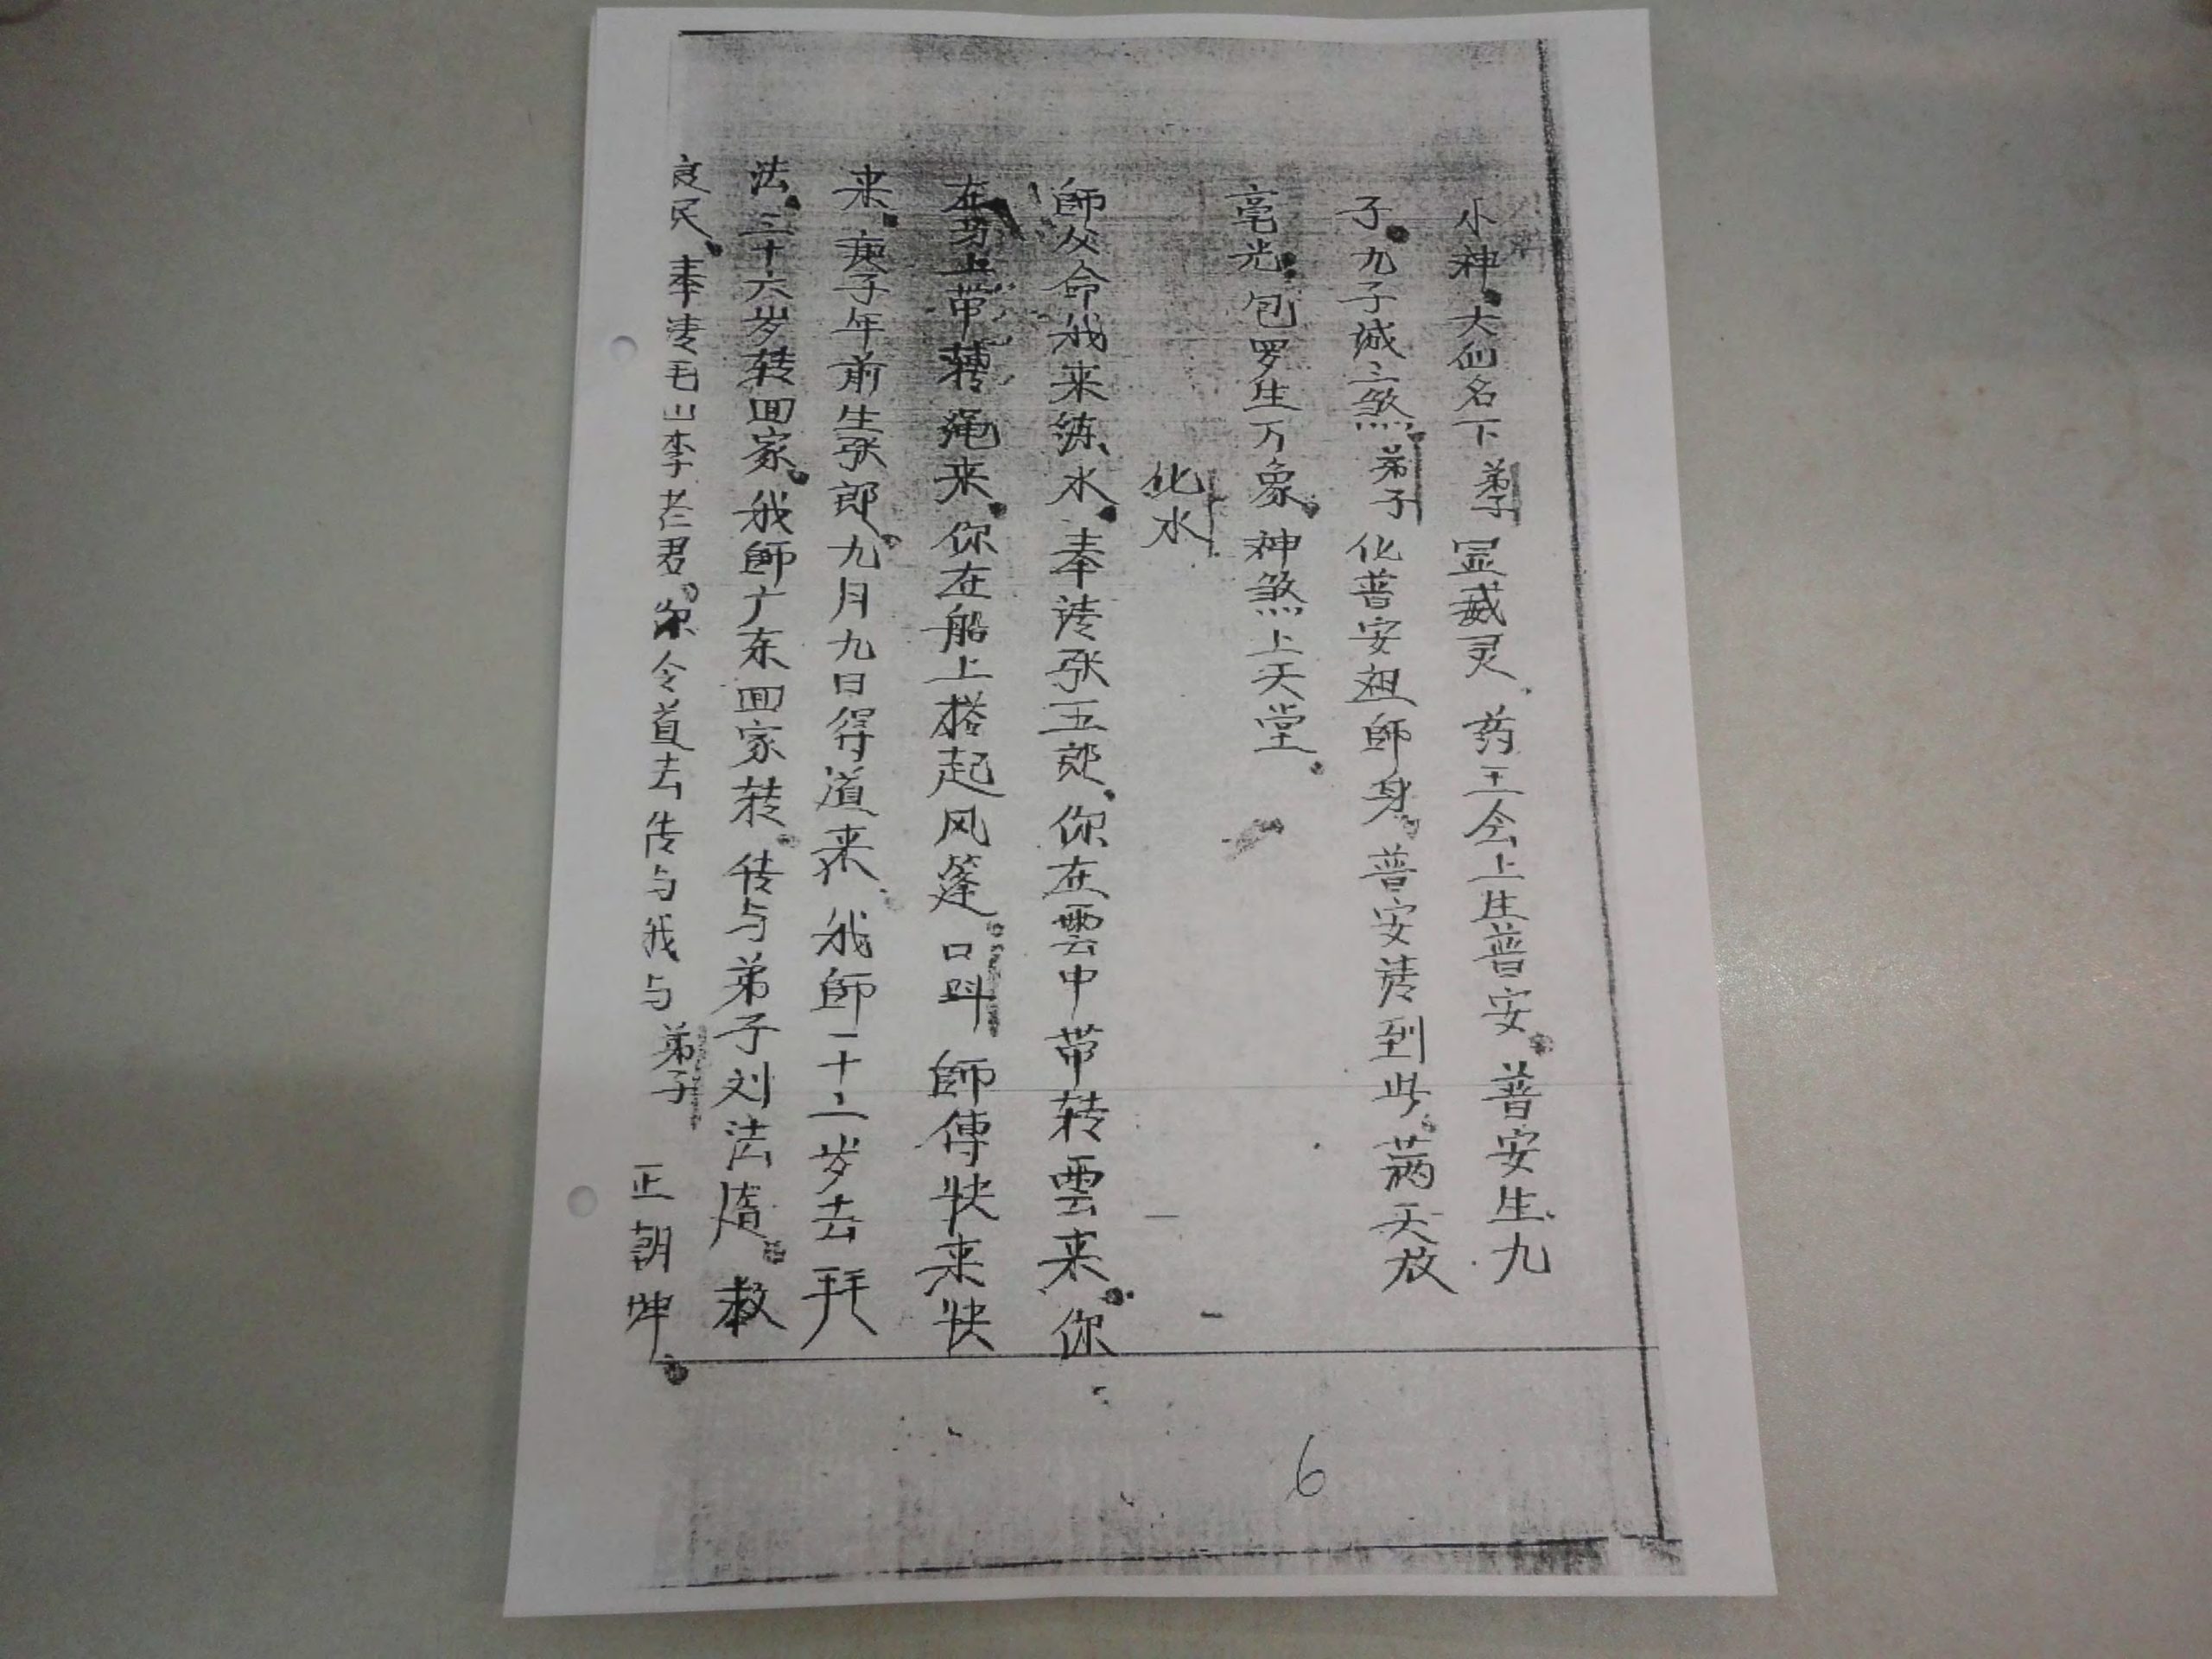 小神。大仙名下弟子显威灵。药王会上生普安。普安生九
子。九子诚三煞。弟子化普安祖師身。普安请到此。满天放
毫光。包罗生万象。神煞上天堂。
化水
師父命我来练水。奉请张五郎。你在雲中带转雲来。你
在马上带转绳来。你在船上搭起风篷。口叫師傅快来快
来。庚子年前生张郎。九月九日得道来。我師一十二岁去拜
法。三十六岁转回家。我師广东回家转。传与弟子刘法隋。救
良民。奉请毛山李老君。你令道去传与我与弟子正朝坤。
6